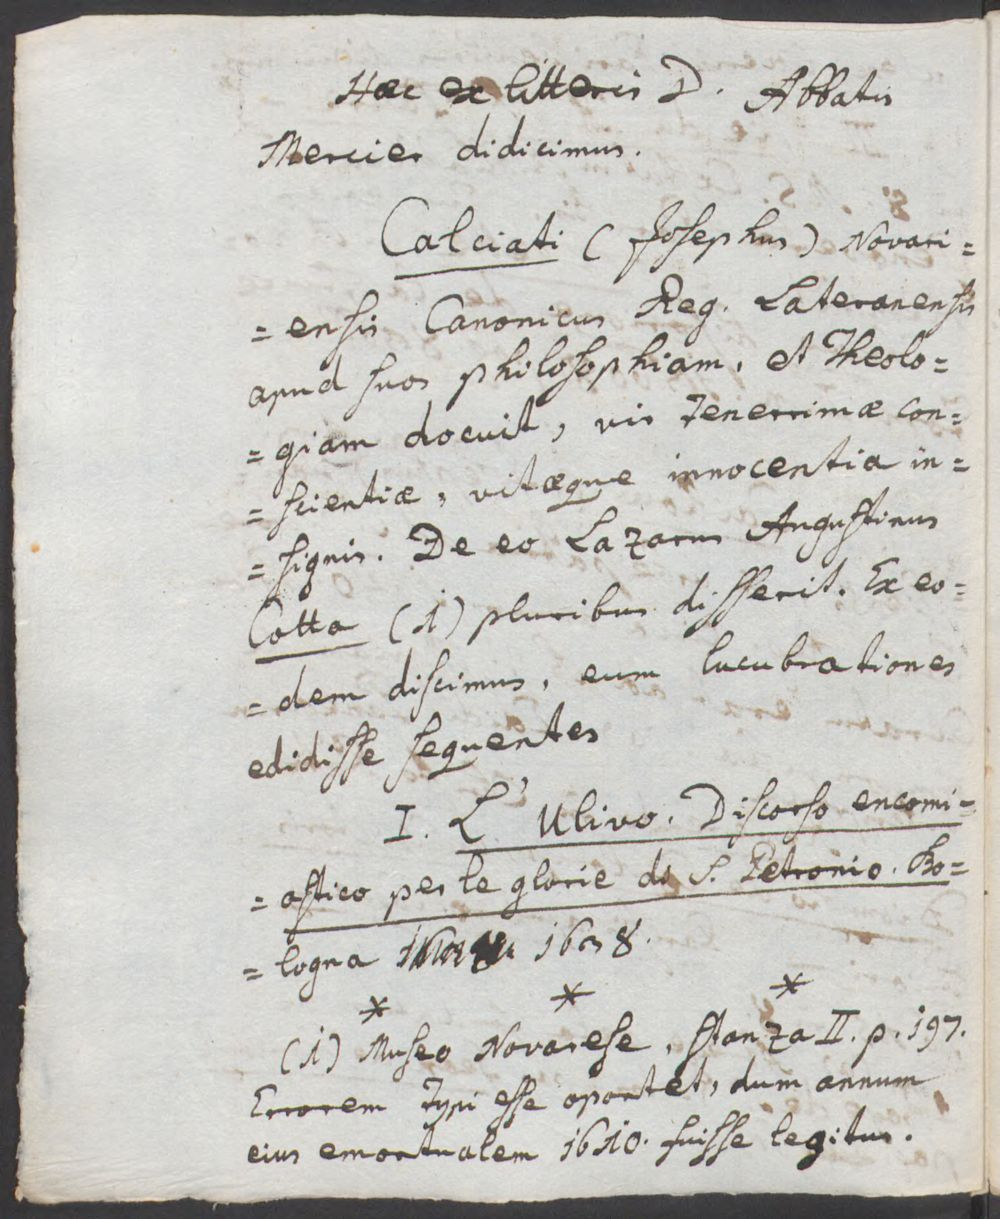 Hæc ex litteris D. Abbatis
Mercier didicimus.
Calciati (Josephus) Novari=
=ensis Canonicus Reg. Lateranensis
apud suos philosophiam, et Theolo=
=giam docuit, vir tenerrimæ con=
=scientiæ, vitæque innocentia in=
=signis. De eo Lazarus Augustinus
Cotta (1) pluribus disserit. Ex eo=
=dem discimus, eum lucubrationes
edidisse sequentes
I. L'Ulivo. Discorso encomi=
=astico per le glorie di S. Petronio. Bo=
=logna
* * *
(1) Museo Novarese, stanza II. p. 197.
Errorem Typi esse oportet, dum annum
eius emortualem 1610. fuisse legitur.